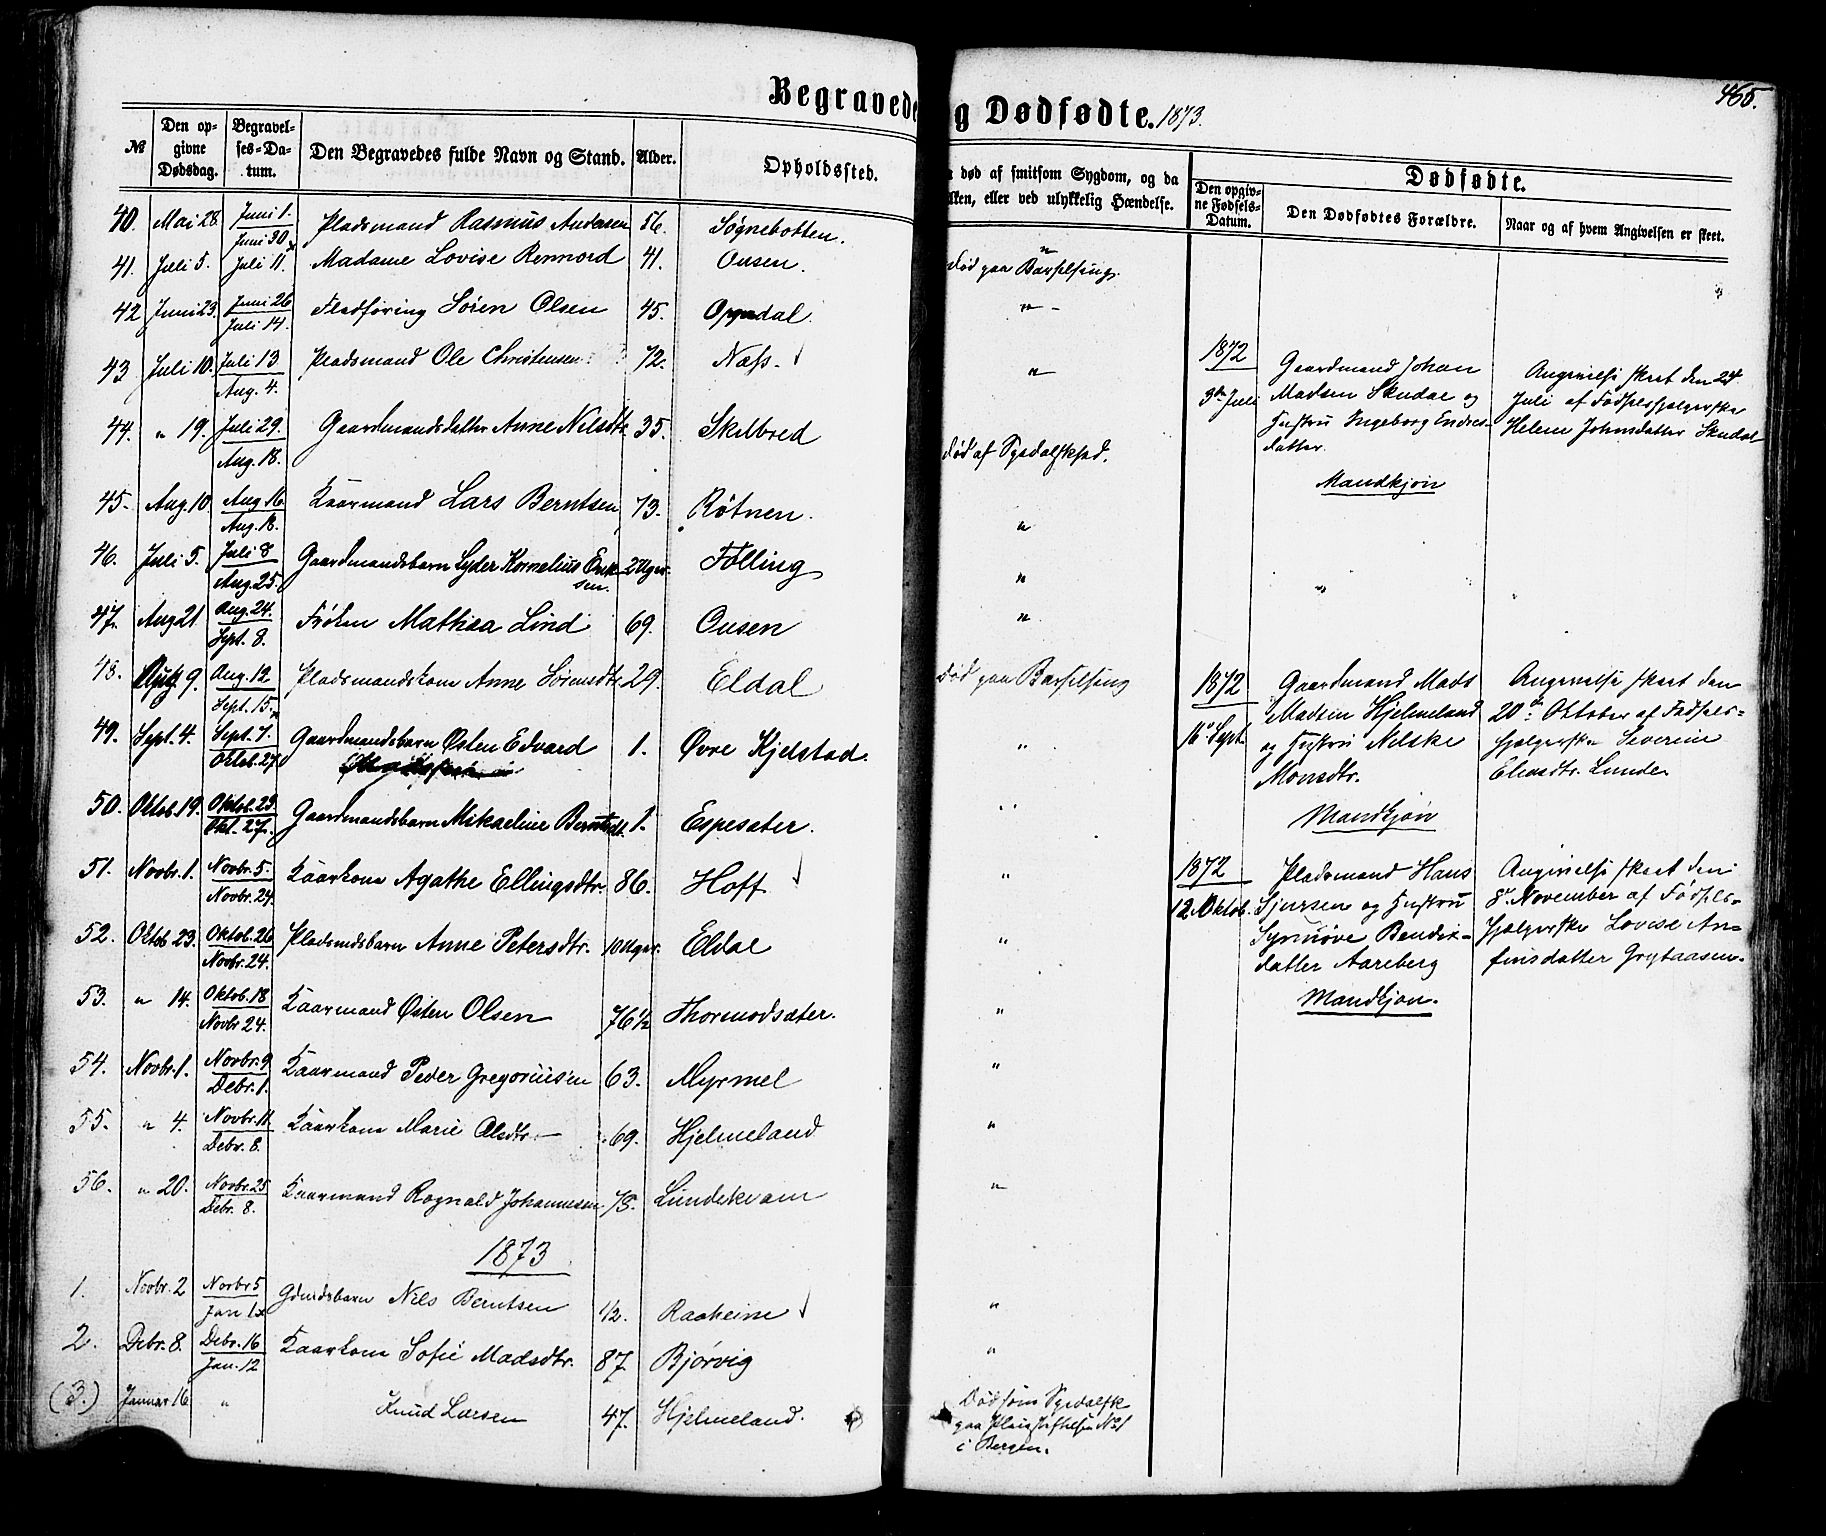 Begravede
og Dødfødte. 1873.
465.
№
Den opgivne Dødsdag.
Begravelses-Datum.
Den Begravedes fulde Navn og Stand.
Alder.
Opholdssted.
død af smitsom Sygdom, og da
ilken, eller ved ulykkelig Hændelse.
Dødfødte.
Den opgivne Fødsels-Datum.
Den Dødfødtes Forældre.
Naar og af hvem Angivelsen er skeet.
40. Mai 28. Juni 1. / Juni 30 Pladsmand Rasmus Andersen 56. Søgnebotten. "
41. Juli 5. Juli 11. Madame Lovise Rennord 41. Ousen. død paa Barselseng.
42 Juni 23. Juni 26 / Juli 14. Søren Olsen 45. Opdal. "
43 Juli 10. Juli 13 / Aug. 4. Pladsmand Ole Christensen 72. Næss. "
44. " 19. Juli 29. / Aug. 18. Gaardmandsdatter Anne Nilsdtr. 35. Skilbred død af Spedalskhed.
45. Aug. 10. Aug. 16 / Aug. 18. Kaarmand Lars Berntsen 73. Røtnen. "
46. Juli 5. Juli 8 / Aug. 25. Gaardmandsbarn Lyder Kornelius Enk-
sen. 2 Uger. Følling "
47. Aug 21. Aug. 24. / Sept. 8. Frøken Mathea Lind 69. Ousen "
48. Aug 9. Aug. 12 / Sept. 15. Pladsmandskone Anne Sørensdtr. 29. Eldal død paa Barselseng
49. Sept. 4. Sept. 7. / Oktob. 27 Gaardmandsbarn Østen Edvard 1. Øvre Kjelstad. "
50. Oktob. 19. Oktob. 23 / Okt. 27. Gaardmandsbarn Mikaeline Berntsdt. 1. Espesater. "
51. Novbr. 1. Novbr. 5. / Novbr. 24. Kaarkone Agathe Ellingsdtr. 86. Hoff "
52. Oktob 23. Oktob. 26 / Novbr. 24. Pladsmdsbarn Anne Petersdtr. 10 Uger. Eldal "
53. " 14. Oktob. 18 / Novbr 24. Kaarmand Østen Olsen 76½ Thormodsæter. "
54. Novbr. 1. Novbr. 9 / Debr. 1. Kaarmand Peder Gregoriusen 63. Myrmel "
55. " 4. Novbr. 11. / Debr. 8. Kaarkone Marie Olsdtr. 69. Hjelmeland "
56. " 20. Novbr. 25 / Debr. 8. Kaarmand Rognald Johannesen 75. Lundekvam "
1873
1. Novbr. 2 Novbr 5 / Jan 12 Gdmdsbarn Nils Berntsen 1/2. Raaheim "
2. Debr. 8. Debr. 16 / Jan. 12 Kaarkone Sofie Madsdtr. 87. Bjørvig "
(3.) Januar 16 " Knud Larsen 47. Hjelmeland. Død som Spedalsk
paa Pleiestiftelsen No 1
i Bergen.
1872
3die Juli
Gaardmand Johan
Madsen Skudal og
Hustru Ingeborg Endres-
datter.
Mandkjøn
Angivelse skeet den 24.
Juli af Fødselshjælperske
Helene Johnsdatter Skudal
1872
16. Sept.
Gaardmand Mads
Madsen Hjelmeland
og Hustru Nilske
Monsdtr.
Mandkjøn
Angivelse skeet den
20de Oktober af Fødsels-
hjælperske Severine
Eliasdtr. Lunde.
1872
12. Oktob.
Pladsmand Hans
Sjursen og Hustru
Synnøve Bendix-
datter Aareberg
Mandkjøn.
Angivelse skeet den
8. November af Fødsels-
hjælperske Lovise An-
finsdatter Grytaasen.